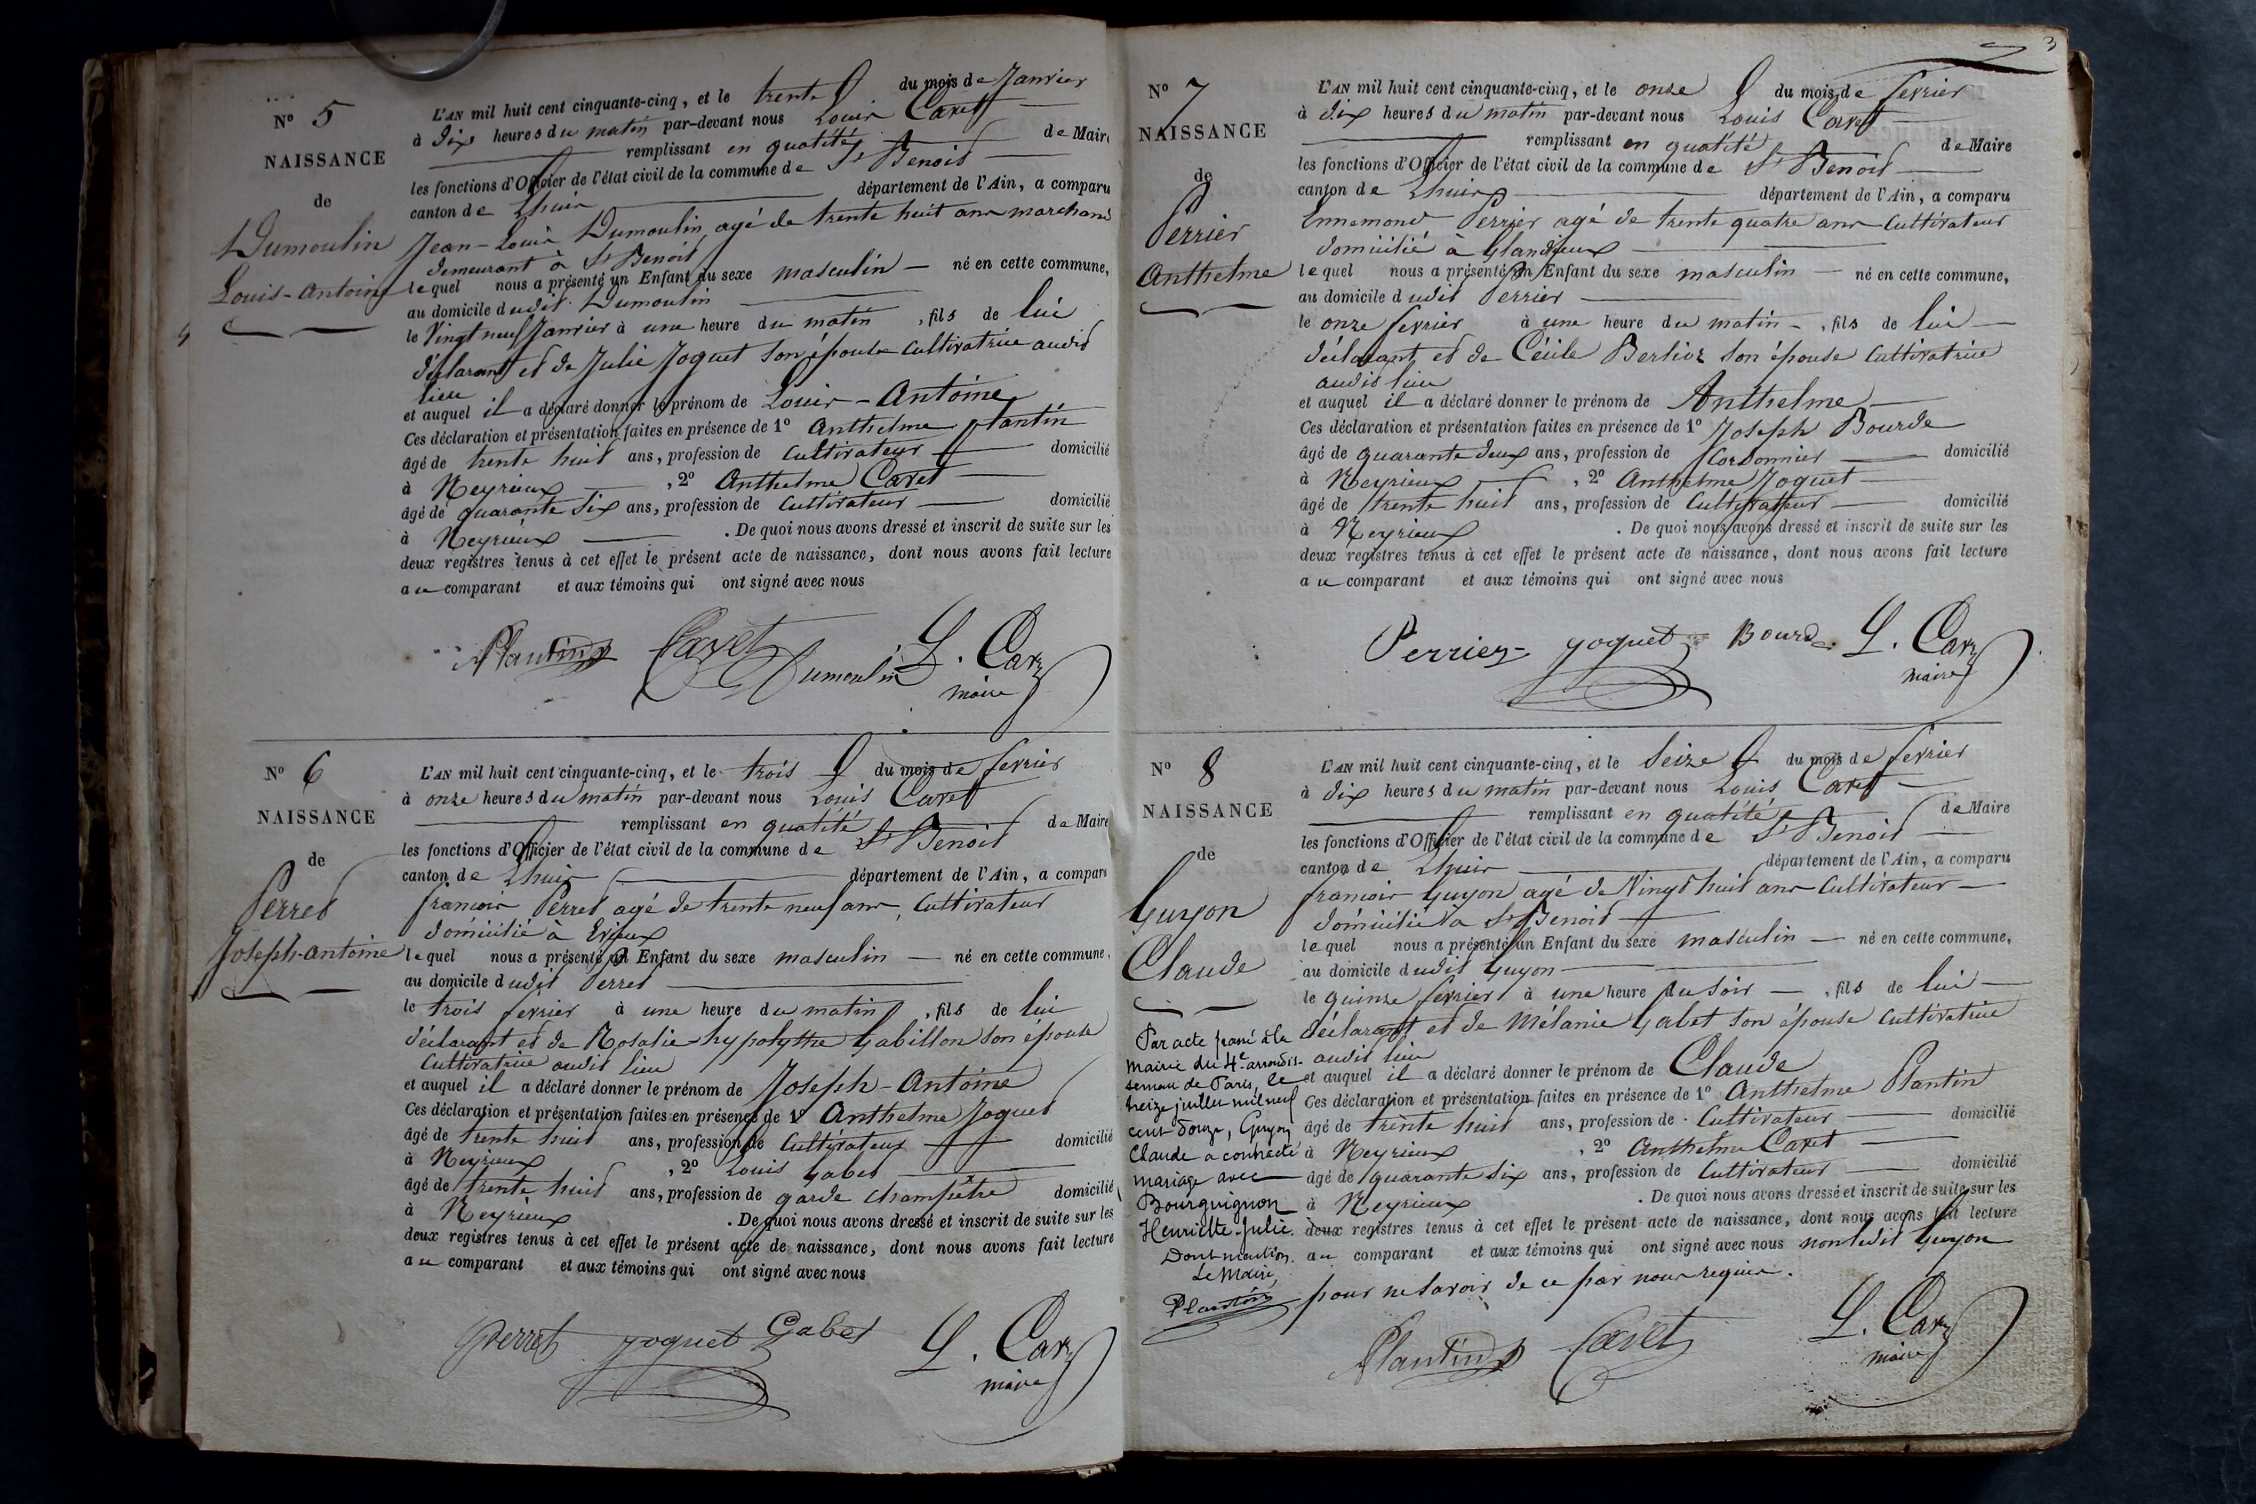 N° 5
NAISSANCE
de
Dumoulin
Louis-Antoine
L'AN mil huit cent cinquante-cinq, et le trente du mois de Janvier
à dix heures du matin par-devant nous Louis Cavet
remplissant en qualité de Maire
les fonctions d'Officier de l'état civil de la commune de St Benoit
canton de Lhuis département de l'Ain, a comparu
Jean-Louis Dumoulin agé de trente huit ans marchand
demeurant à St Benoit
lequel nous a présenté un Enfant du sexe masculin né en cette commune,
au domicile dudit Dumoulin
le Vingt neuf Janvier à une heure du matin, fils de lui
déclarant et de Julie Joguet son épouse cultivatrice audit
lieu
et auquel il a déclaré donner le prénom de Louis-Antoine
Ces déclaration et présentation faites en présence de 1° Anthelme Plantin
âgé de trente huit ans, profession de Cultivateur domicilié
à Neyrieux, 2° Anthelme Cavet
âgé de quarante six ans, profession de Cultivateur domicilié
à Neyrieux. De quoi nous avons dressé et inscrit de suite sur les
deux registres tenus à cet effet le présent acte de naissance, dont nous avons fait lecture
au comparant et aux témoins qui ont signé avec nous
Plantin Cavet Dumoulin L. Cavet
maire
N° 6
NAISSANCE
de
Perret
Joseph-Antoine
L'AN mil huit cent cinquante-cinq, et le trois du mois de fevrier
à onze heures du matin par-devant nous Louis Cavet
remplissant en qualité de Maire
les fonctions d'Officier de l'état civil de la commune de St Benoit
canton de Lhuis département de l'Ain, a comparu
francois Perret agé de trente neuf ans, Cultivateur
domicilié à Evieux
lequel nous a présenté un Enfant du sexe masculin né en cette commune,
au domicile dudit Perret
le trois fevrier à une heure du matin, fils de lui
déclarant et de Rosalie hypolythe Gabillon son épouse
Cultivatrice audit lieu
et auquel il a déclaré donner le prénom de Joseph-Antoine
Ces déclaration et présentation faites en présence de 1° Anthelme Joguet
âgé de trente huit ans, profession de Cultivateur domicilié
à Neyrieux, 2° Louis Gabet
âgé de trente huit ans, profession de garde champêtre domicilié
à Neyrieux. De quoi nous avons dressé et inscrit de suite sur les
deux registres tenus à cet effet le présent acte de naissance, dont nous avons fait lecture
au comparant et aux témoins qui ont signé avec nous
Perret joguet Gabet L. Cavet
maire
3
N° 7
NAISSANCE
de
Perrier
Anthelme
L'AN mil huit cent cinquante-cinq, et le onze du mois de fevrier
à dix heures du matin par-devant nous Louis Cavet
remplissant en qualité de Maire
les fonctions d'Officier de l'état civil de la commune de St Benoit
canton de Lhuis département de l'Ain, a comparu
Ennemond Perrier agé de trente quatre ans Cultivateur
domicilié à Glandieux
lequel nous a présenté un Enfant du sexe masculin né en cette commune,
au domicile dudit Perrier
le onze fevrier à une heure du matin, fils de lui
déclarant et de Cécile Berlioz son épouse Cultivatrice
audit lieu
et auquel il a déclaré donner le prénom de Anthelme
Ces déclaration et présentation faites en présence de 1° Joseph Bourde
âgé de quarante deux ans, profession de Cordonnier domicilié
à Neyrieux, 2° Anthelme Joguet
âgé de trente huit ans, profession de Cultivateur domicilié
à Neyrieux. De quoi nous avons dressé et inscrit de suite sur les
deux registres tenus à cet effet le présent acte de naissance, dont nous avons fait lecture
au comparant et aux témoins qui ont signé avec nous
Perrier joguet Bourde L. Cavet
maire
N° 8
NAISSANCE
de
Guyon
Claude
L'AN mil huit cent cinquante-cinq, et le Seize du mois de fevrier
à dix heures du matin par-devant nous Louis Cavet
remplissant en qualité de Maire
les fonctions d'Officier de l'état civil de la commune de St Benoit
canton de Lhuis département de l'Ain, a comparu
francois Guyon agé de Vingt huit ans Cultivateur
domicilié à St Benoit
lequel nous a présenté un Enfant du sexe masculin né en cette commune,
au domicile dudit Guyon
le quinze fevrier à une heure du soir, fils de lui
déclarant et de Mélanie Gabet son épouse Cultivatrice
audit lieu
et auquel il a déclaré donner le prénom de Claude
Ces déclaration et présentation faites en présence de 1° Anthelme Plantin
âgé de trente huit ans, profession de Cultivateur domicilié
à Neyrieux, 2° Anthelme Cavet
âgé de quarante six ans, profession de Cultivateur domicilié
à Neyrieux. De quoi nous avons dressé et inscrit de suite sur les
deux registres tenus à cet effet le présent acte de naissance, dont nous avons fait lecture
au comparant et aux témoins qui ont signé avec nous non ledit Guyon
pour ne savoir de ce par nous requis.
Plantin Cavet L. Cavet
maire
Par acte passé à la
mairie du 4e arrondis-
sement de Paris, le
treize juillet mil neuf
cent douze, Guyon
Claude a contracté
mariage avec
Bourguignon
Henriette-Julie.
Dont mention.
Le Maire,
Plantin